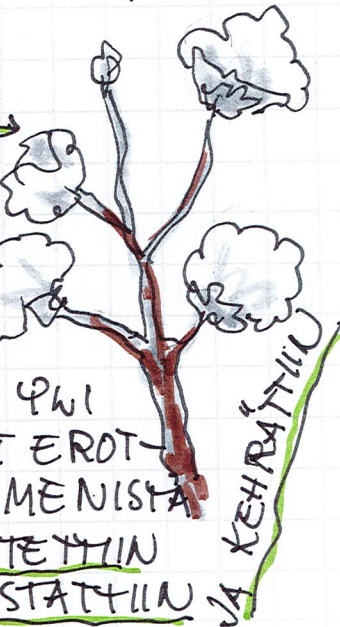 EROT-
MENISTÄ
TETTIIN
STATTIIN
JA KEHRÄTTIIN